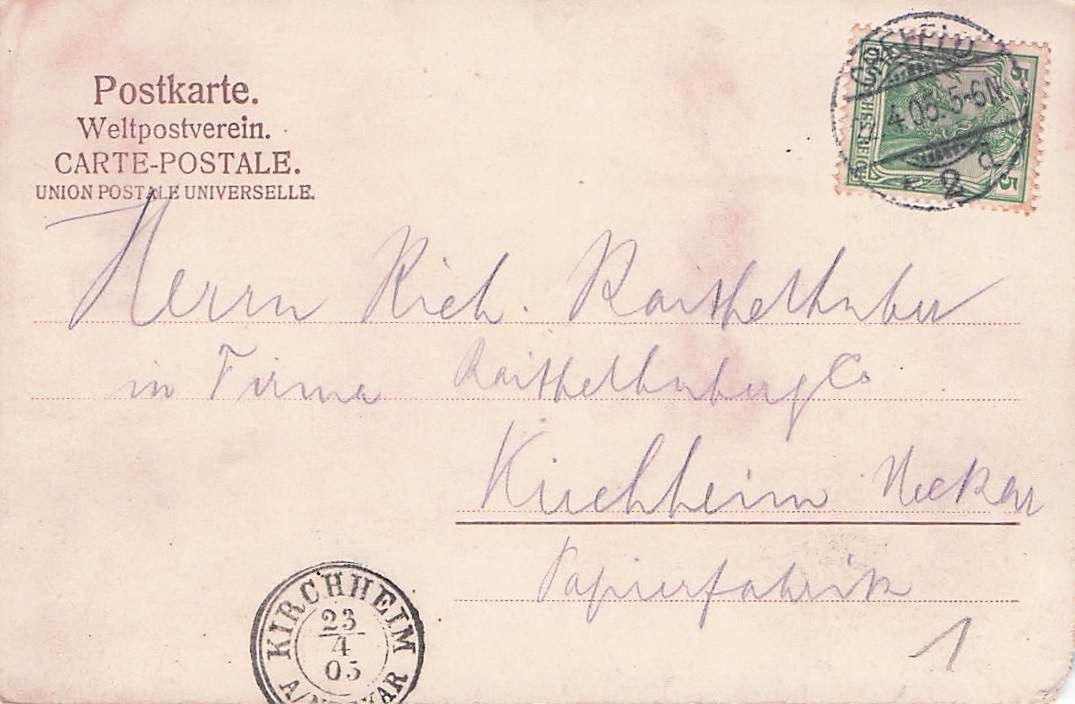 Postkarte.
Weltpostverein.
CARTE-POSTALE.
UNION POSTALE UNIVERSELLE.
5 5
4 05. 5-6N.
2
Herrn Rich. Raithelhuber
in Firma Raithelhuber & Co
Kirchheim Neckar
Papierfabrik
1
KIRCHHEIM
23
4
05
A/NECKAR